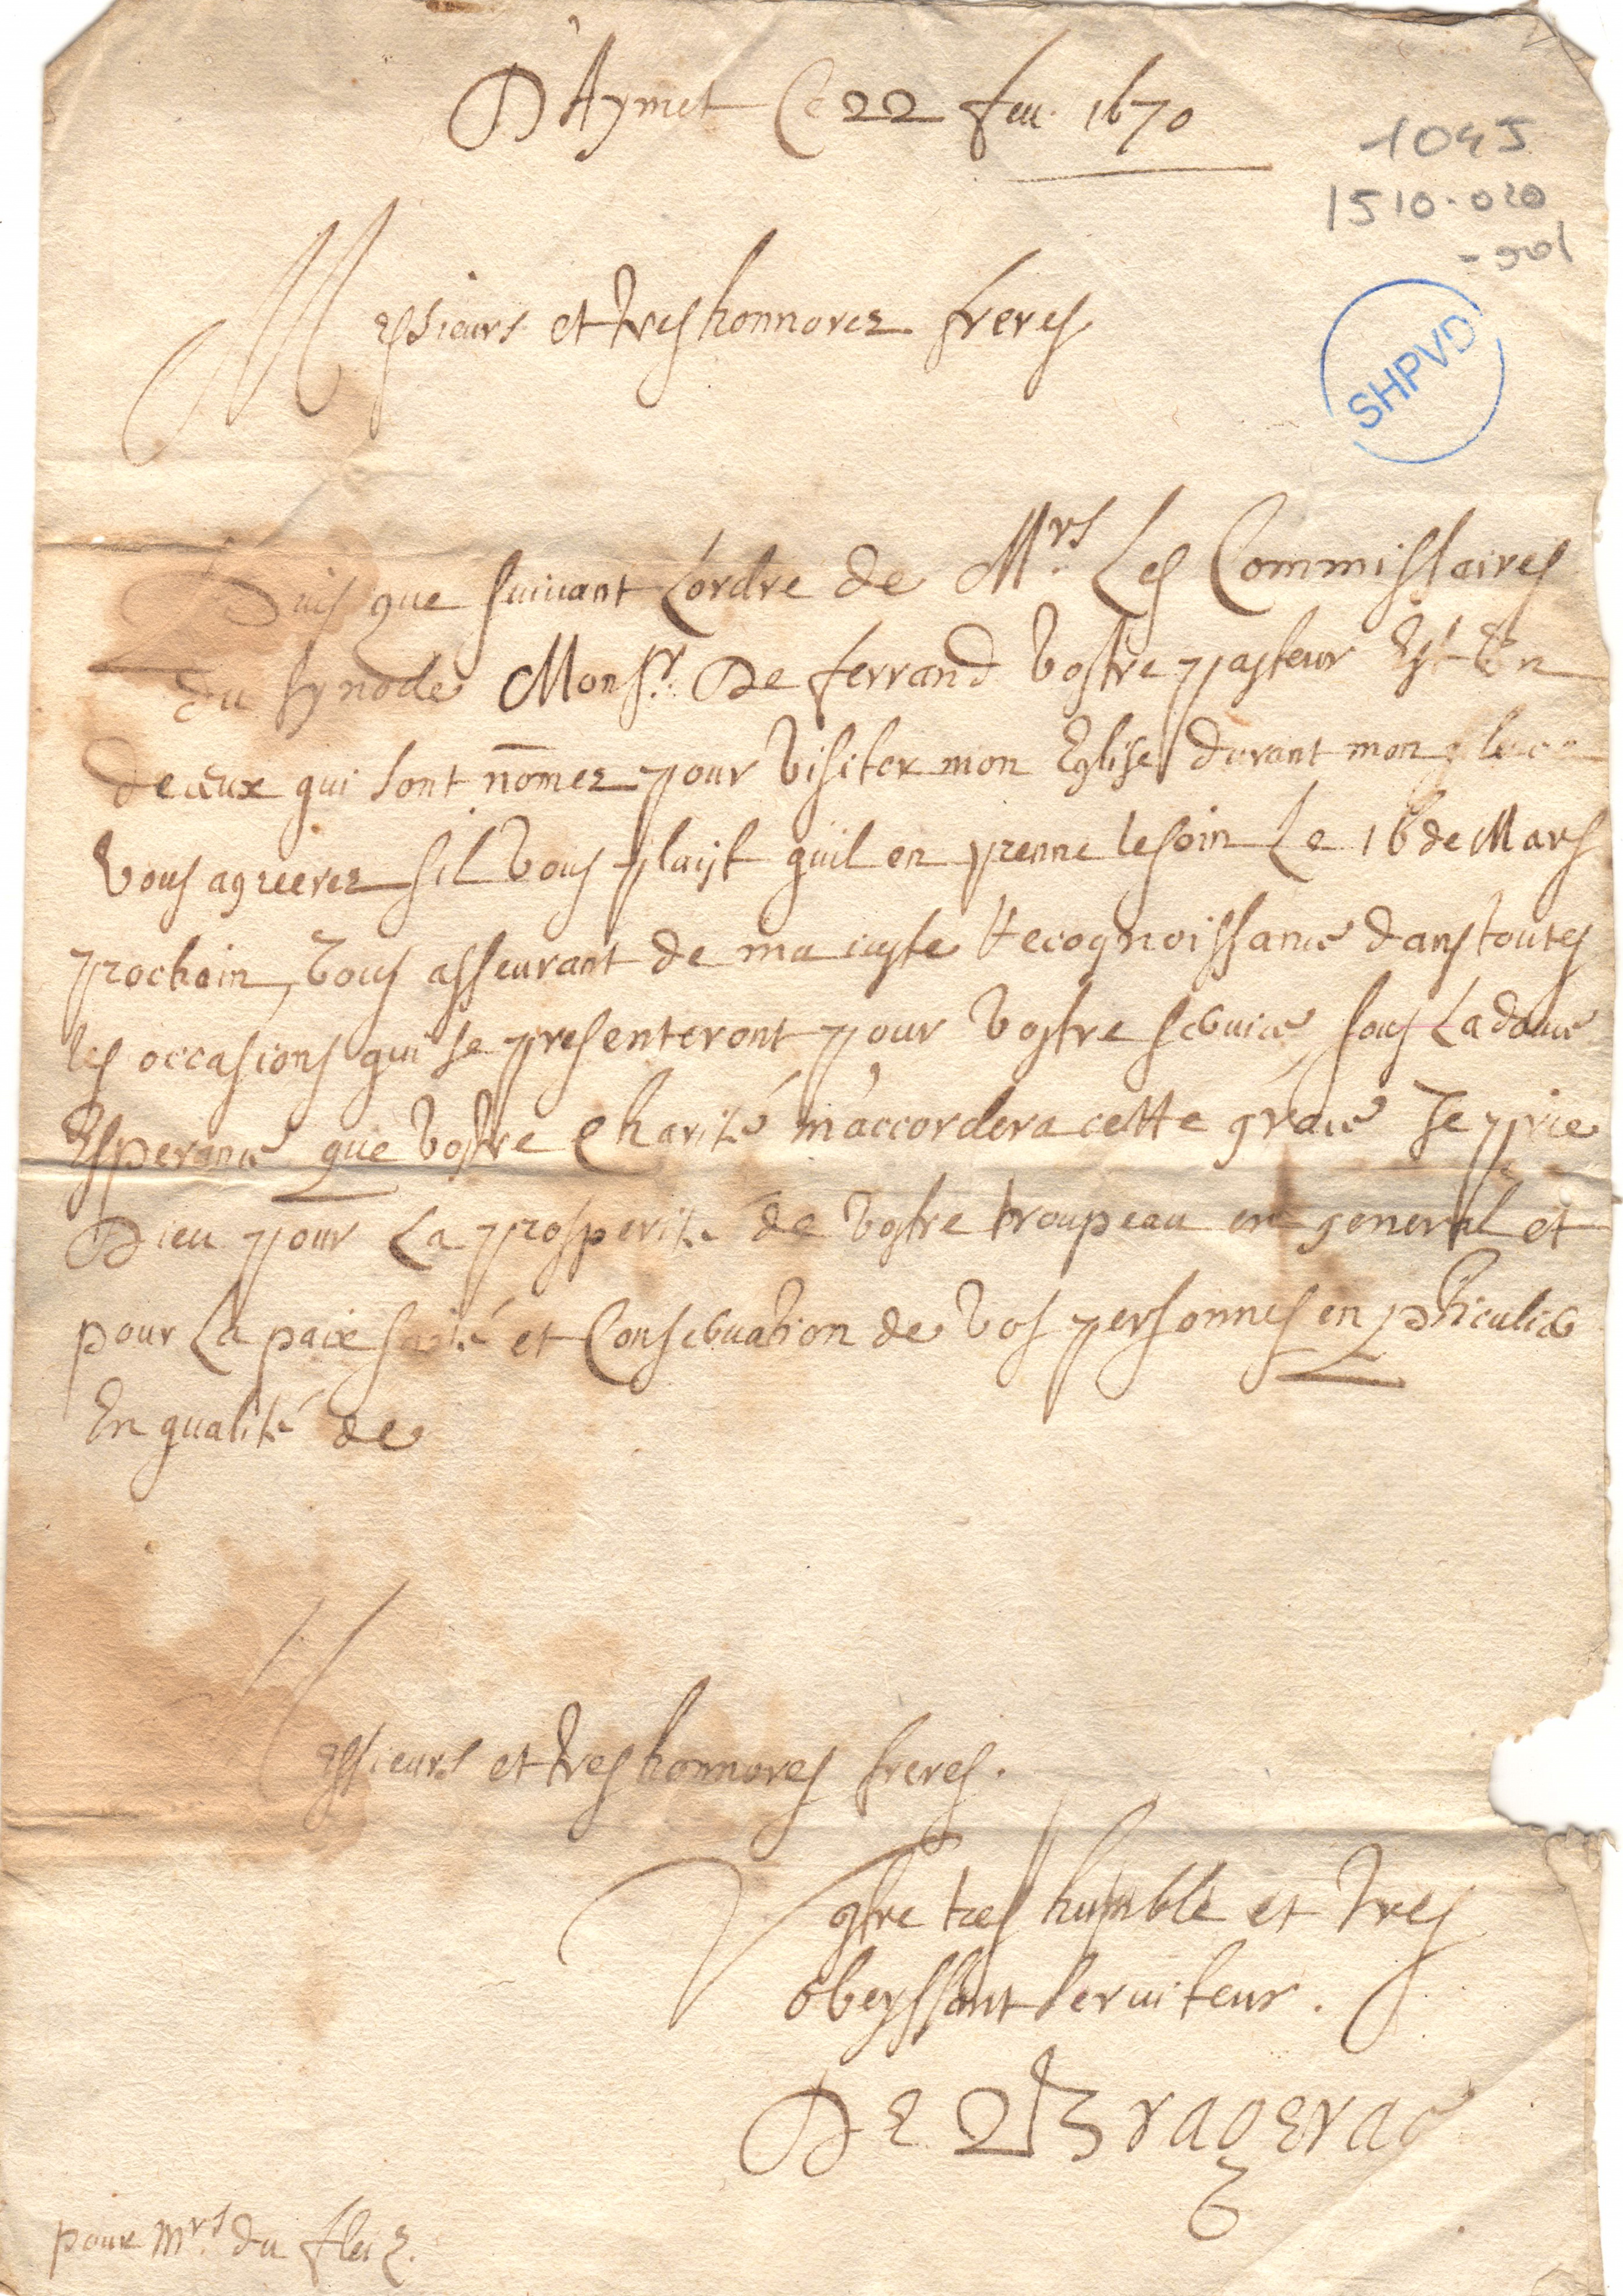 D'Aymet Ce 22 feu. 1670
1045
1510-020
SHPVD
Messieurs et tres honnorez freres
Puis que suiuant L'ordre de Mrs. Les Commissaires
du synode Monsr. De ferrand vostre pasteur Est Un
de ceux qui sont nōmez pour visiter mon Eglise durant mon
vous agreerez s'il vous plaist qu'il en prenne le soin Le 16 de Mars
prochain, vous asseurant de ma iuste Recognoissance dans toutes
les occasions qui se presenteront pour vostre seruice, sous La douce
Esperance que vostre Charité m'accordera cette grace Je prie
Dieu pour La prosperité de vostre troupeau en general et
pour La paix santé et Conseruation de vos personnes en pticulier
En qualité de
Messieurs et tres honnores freres.
Vostre tres humble et tres
obeyssant seruiteur.
DE Bragerac
pour Mrs. du fleix.